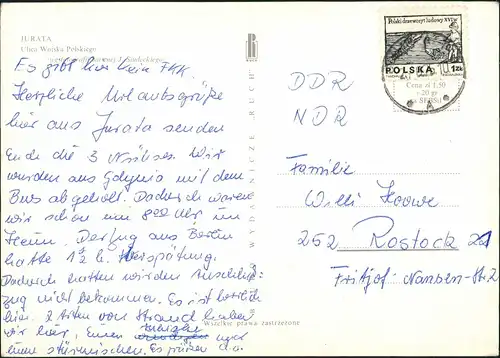 JURATA
Ulica Wojska Polskiego
Es gibt hier kein FKK.
Herzliche Urlaubsgrüße
hier aus Jurata senden
Euch die 3 Wir
wurden aus Gdynia mit dem
Bus abgeholt. Dadurch waren
wir schon um 800 Uhr im
Heim. Der Zug aus Berlin
hatte 1½ h. Verspätung.
Dadurch hatten wir den Anschluß-
zug nicht bekommen. Es ist herrlich
hier. 2 Arten von Strand haben
wir hier, Einen ruhigen und
einen stürmischen. Es grüßen
RUCH
Wszelkie prawa zastrzeżone
Polski drzeworyt ludowy XVI w.
POLSKA 1 ZŁ
Cena zł 1,50
+ 20 gr
DDR
NDR
Familie
Willi
252 Rostock 21
Fritjof-Nansen-Str. 2